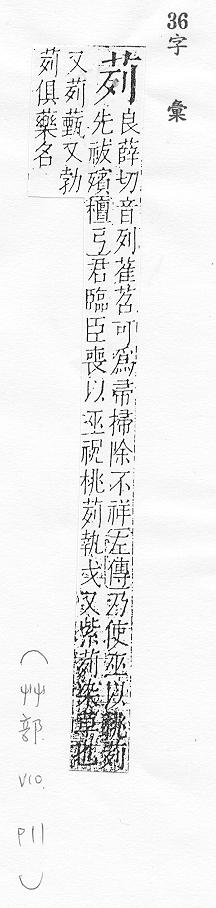 36 字彙
茢 良薛切音列萑苕可爲帚掃除不祥左傳乃使巫以桃茢
先祓殯檀弓君臨臣喪以巫祝桃茢執戈又紫茢染草也
又茢薽又勃
茢俱藥名
(艸部 V10. P11)